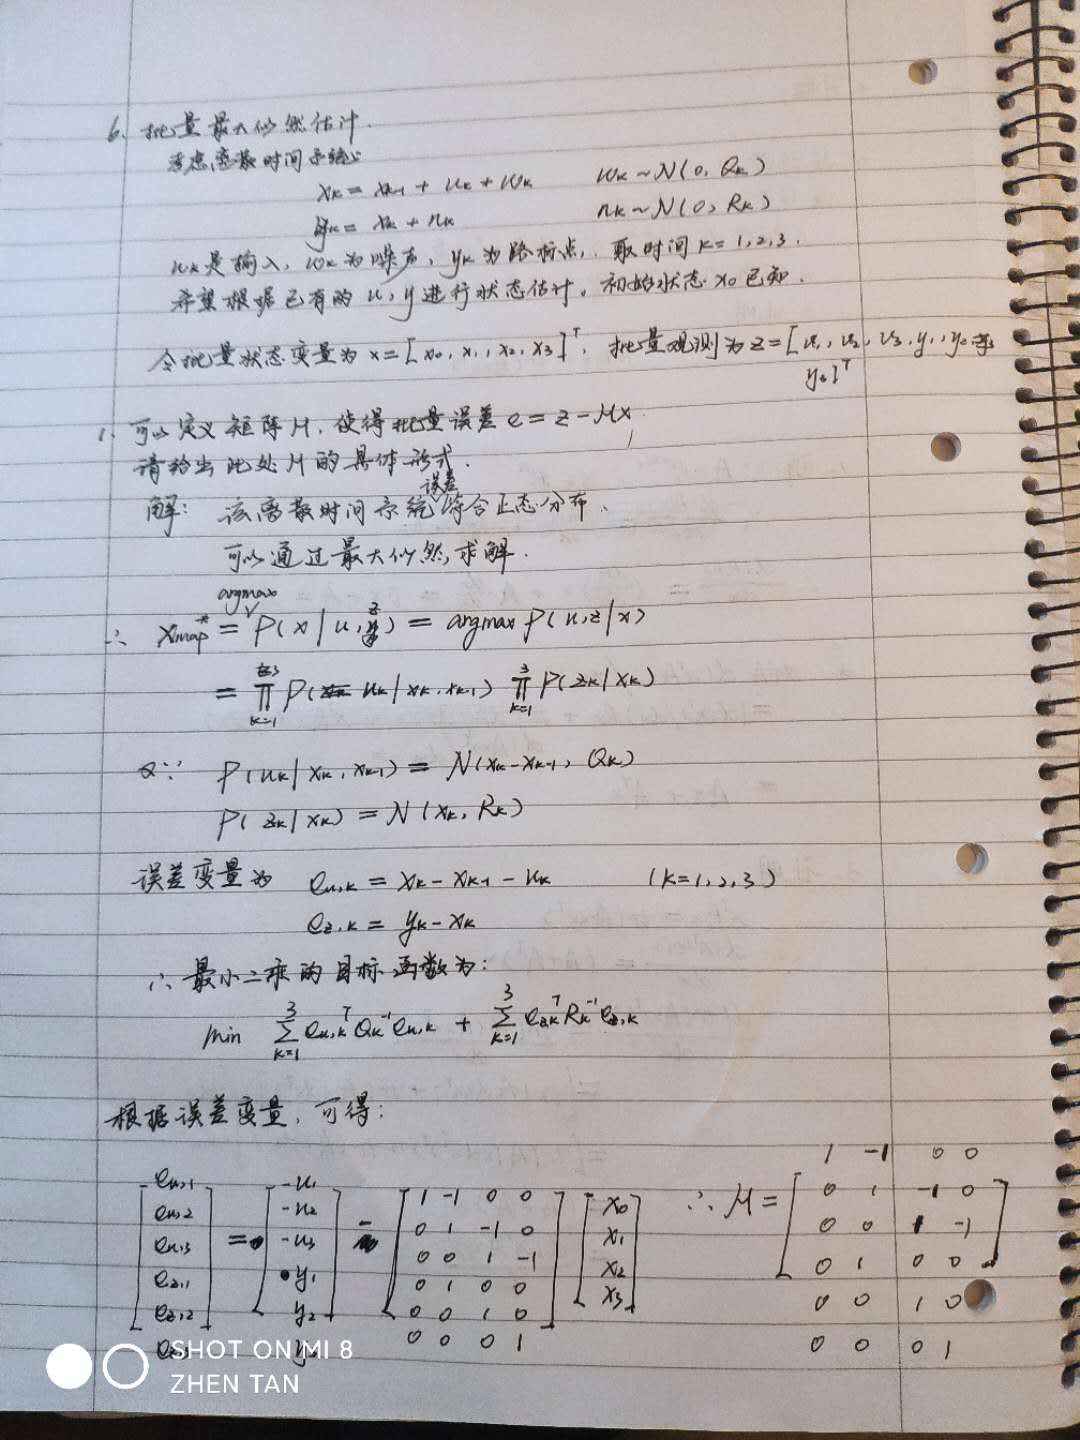 6. 批量最大似然估计.
考虑离散时间系统:
xk = xk-1 + uk + wk    wk ~ N(0, Qk)
yk = xk + nk    nk ~ N(0, Rk)
uk是输入, wk为噪声, yk为路标点, 取时间 k = 1,2,3.
希望根据已有的 u, y 进行状态估计. 初始状态 x0 已知.
令批量状态变量为 x = [x0, x1, x2, x3]ᵀ, 批量观测为 z = [u1, u2, u3, y1, y2,
y3]ᵀ
1. 可以定义矩阵H, 使得批量误差 e = z - Hx,
请给出此处H的具体形式.
解: 该离散时间系统误差符合正态分布.
可以通过最大似然, 求解.
∴ xmap* = argmax P(x | u, z) = argmax P(u, z | x)
= ∏_{k=1}^{3} P(uk | xk, xk-1) ∏_{k=1}^{3} P(zk | xk)
又∵ P(uk | xk, xk-1) = N(xk - xk-1, Qk)
P(zk | xk) = N(xk, Rk)
误差变量为 eu,k = xk - xk-1 - uk    (k=1,2,3)
ez,k = yk - xk
∴ 最小二乘的目标函数为:
min ∑_{k=1}^{3} eu,kᵀ Qk⁻¹ eu,k + ∑_{k=1}^{3} ez,kᵀ Rk⁻¹ ez,k
根据误差变量, 可得:
[eu,1 eu,2 eu,3 ez,1 ez,2 = [-u1 -u2 -u3 y1 y2 -
[1 -1 0 0
0 1 -1 0
0 0 1 -1
0 1 0 0
0 0 1 0
0 0 0 1]
[x0 x1 x2 x3]
∴ H =
[1 -1 0 0
0 1 -1 0
0 0 1 -1
0 1 0 0
0 0 1 0
0 0 0 1]
SHOT ON MI 8
ZHEN TAN